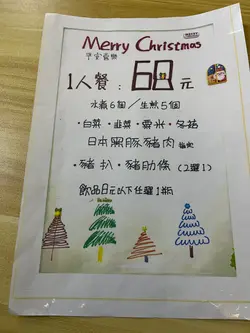 Merry Christmas
平安喜樂
1人餐：68元
水煮6個／生煎5個
・白菜・韭菜・粟米・冬菇
日本黑豚豬肉
・豬扒・豬肋條（2選1）
飲品8元以下任選1瓶